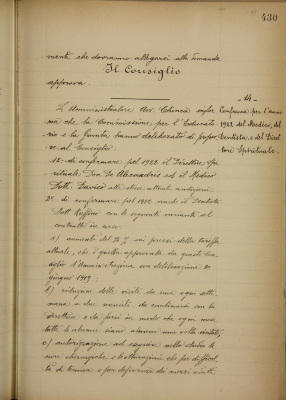 430
mente che dovranno allegarsi alle domande
Il Consiglio
approva.
14.
Conferma per l'anno
1922 del Medico, del
Dentista e del Diret-
tore Spirituale.
L'Amministratore Avv. infor
ma che la Commissione per l'Educato
rio e la Giunta hanno deliberato di propor
re al Consiglio:
1º di confermare pel 1922 il Direttore Spi
rituale Don De Alexandris ed il Medico
Dott. alle stesse attuali condizioni.
2º di confermare pel 1922 anche il Dentista
Dott. Ruffini con le seguenti varianti al
contratto in corso:
a) aumento del % sui prezzi della tariffa
attuale, che è quella approvata da questo Con
siglio d'Amministrazione con deliberazione
giugno 1919;
b) riduzione delle visite da una ogni setti
mana a due mensili da
Direttrice e da farsi in modo che ogni mese
tutte le alunne siano almeno una volta visitate;
c) autorizzazione ad eseguire nello studio le
cure chirurgiche e le otturazioni che per difficol
tà di tecnica e per deficienza dei mezzi